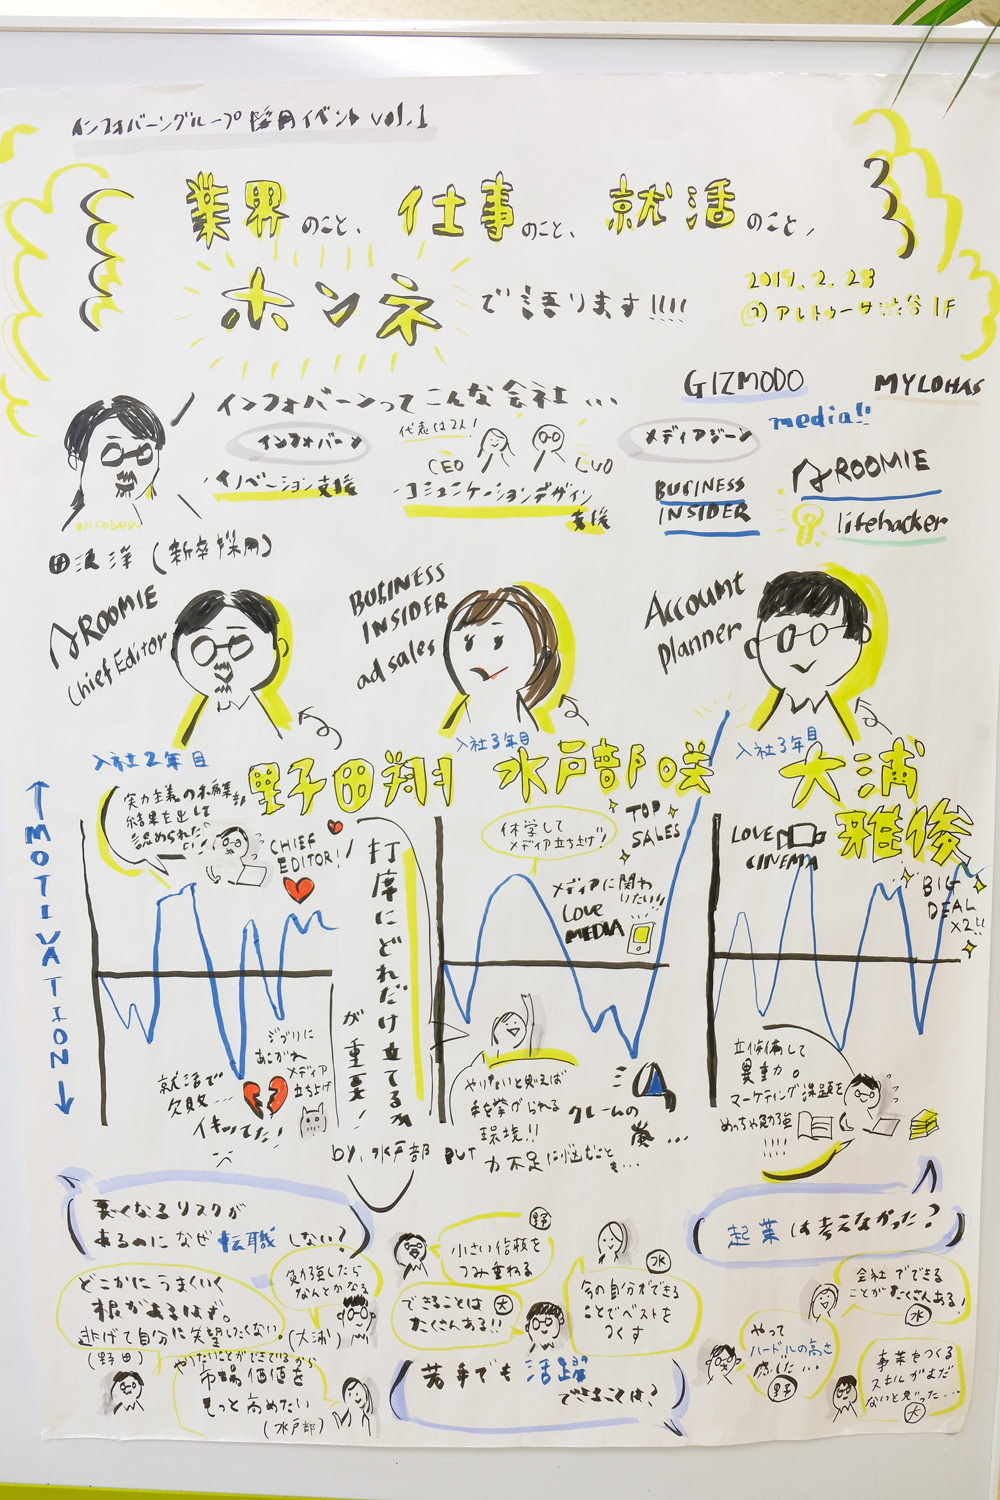 インフォバーングループ 採用イベント vol.1
業界のこと、仕事のこと、就活のこと、
ホンネで語ります!!!!
2019.2.28
@アレトゥーサ渋谷 1F
インフォバーンってこんな会社...
インフォバーン
イノベーション支援
代表は2人!
CEO
CVO
コミュニケーションデザイン
支援
メディアジーン
GIZMODO
MYLOHAS
media!!
BUSINESS
INSIDER
ROOMIE
lifehacker
INFOBAHN
田沢 洋 (新卒採用)
ROOMIE
Chief Editor
入社2年目
野田翔
BUSINESS
INSIDER
ad sales
入社3年目
水戸部 咲
Account
planner
入社3年目
大浦
雅俊
↑MOTIVATION↓
実力主義の
結果を出して
認められた
CHIEF
EDITOR!
就活で
欠敗...
イキってた!
ジブリに
あこがれ
メディア
立ち上げ
打席にどれだけ立てるか
が重要!
by, 水戸部
休学して
メディア立ち上げ!
TOP
SALES
メディアに関わ
りたい!!
LOVE
MEDIA
やりたいと思えば
手を挙げられる
環境!!
クレームの
嵐...
BUT
力不足に悩むことも...
LOVE
CINEMA
BIG
DEAL
X2!!
立候補して
異動。
マーケティング課題を
めっちゃ勉強
!!!!
悪くなるリスクが
あるのになぜ転職しない?
どこかにうまくいく
根があるはず。
逃げて自分に失望したくない。
(野田)
勉強したら
なんとかなる
(大浦)
やりたいことができてるから
市場価値を
もっと高めたい
(水戸部)
野
小さい信頼を
つみ重ねる
できることは 大
たくさんある!!
水
今の自分ができる
ことでベストを
つくす
若手でも活躍
できることは?
起業は考えなかった?
会社でできる
ことがたくさんある!
水
やって
ハードルの高さ
感じた...
野
事業をつくる
スキルがまだ
ないと思った...
大